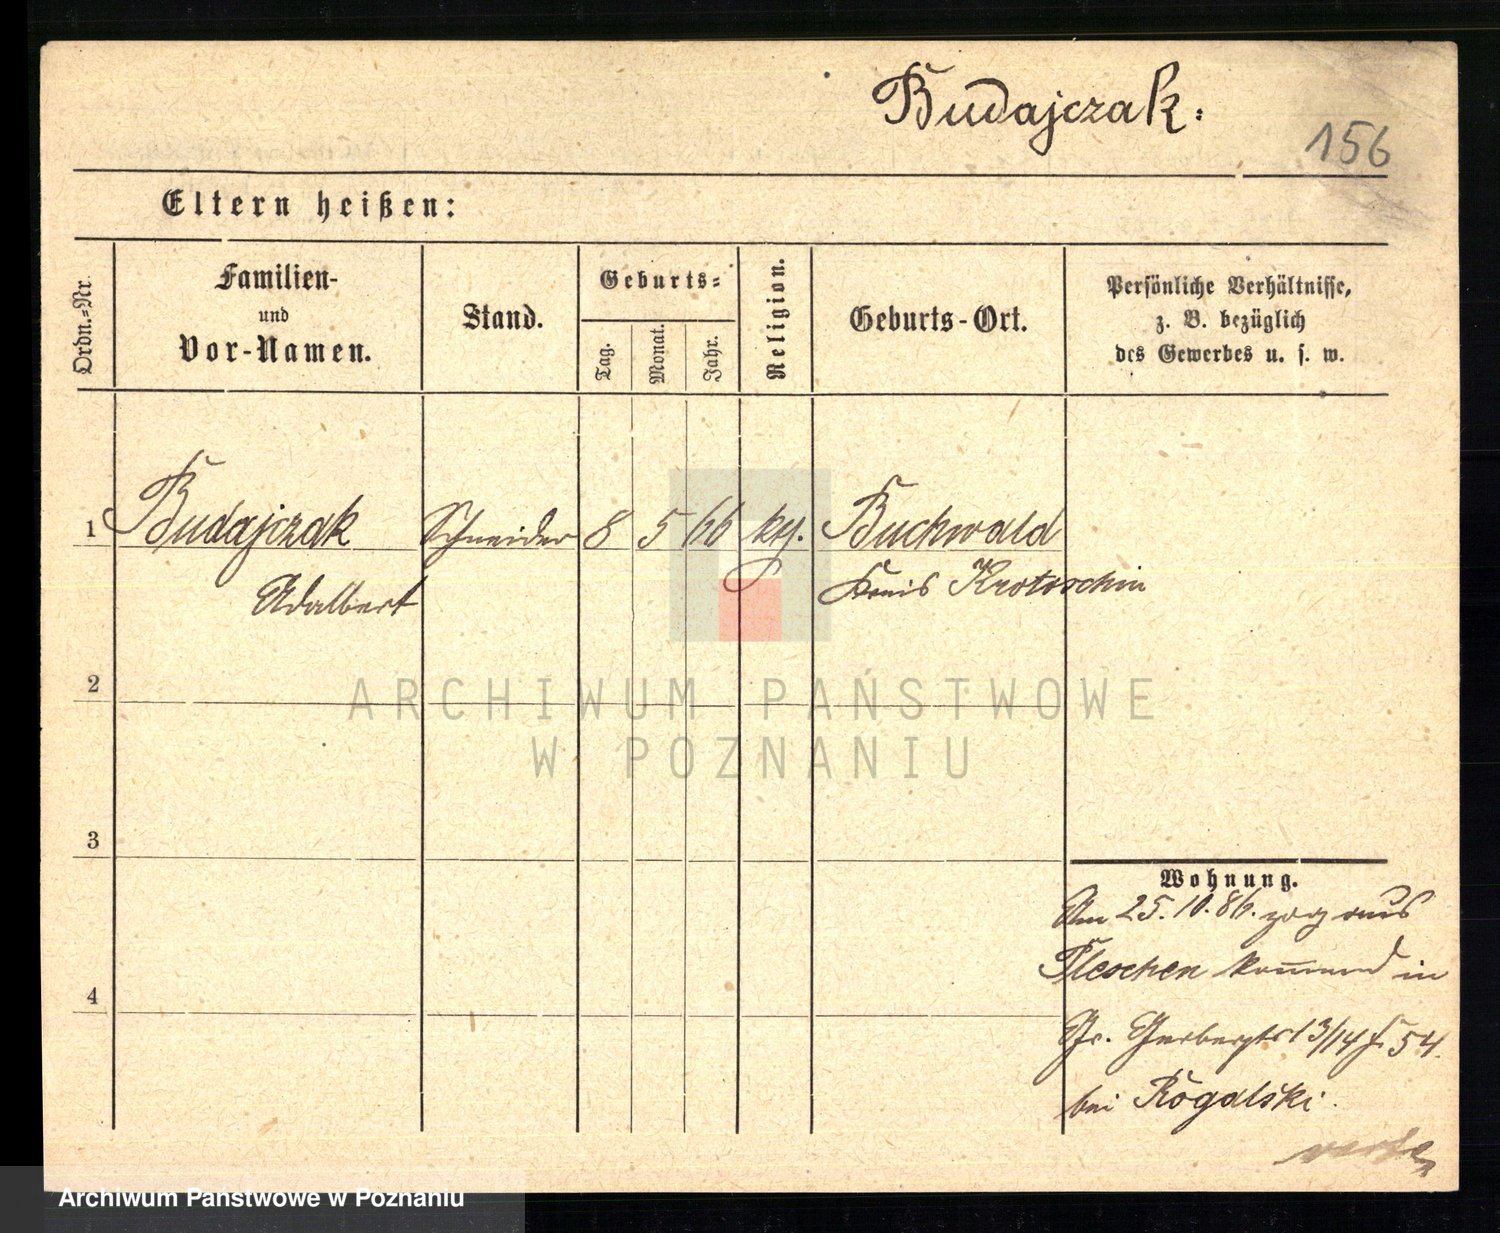 Budajczak.
156
Eltern heißen:
Ordn.-Nr.
Familien-
und
Vor-Namen.
Stand.
Geburts-
Tag.
Monat.
Jahr.
Religion.
Geburts-Ort.
Persönliche Verhältnisse,
z. B. bezüglich
des Gewerbes u. s. w.
1 Budajczak Schneider 8 5 66 Buchwald
Adalbert Kreis Krotoschin
2
3
4
ARCHIWUM PAŃSTWOWE
W POZNANIU
Wohnung.
Am 25.10.86. zog aus
Pleschen kommend in
Gr. Gerberstr 13/14 54.
bei Rogalski.
Archiwum Państwowe w Poznaniu